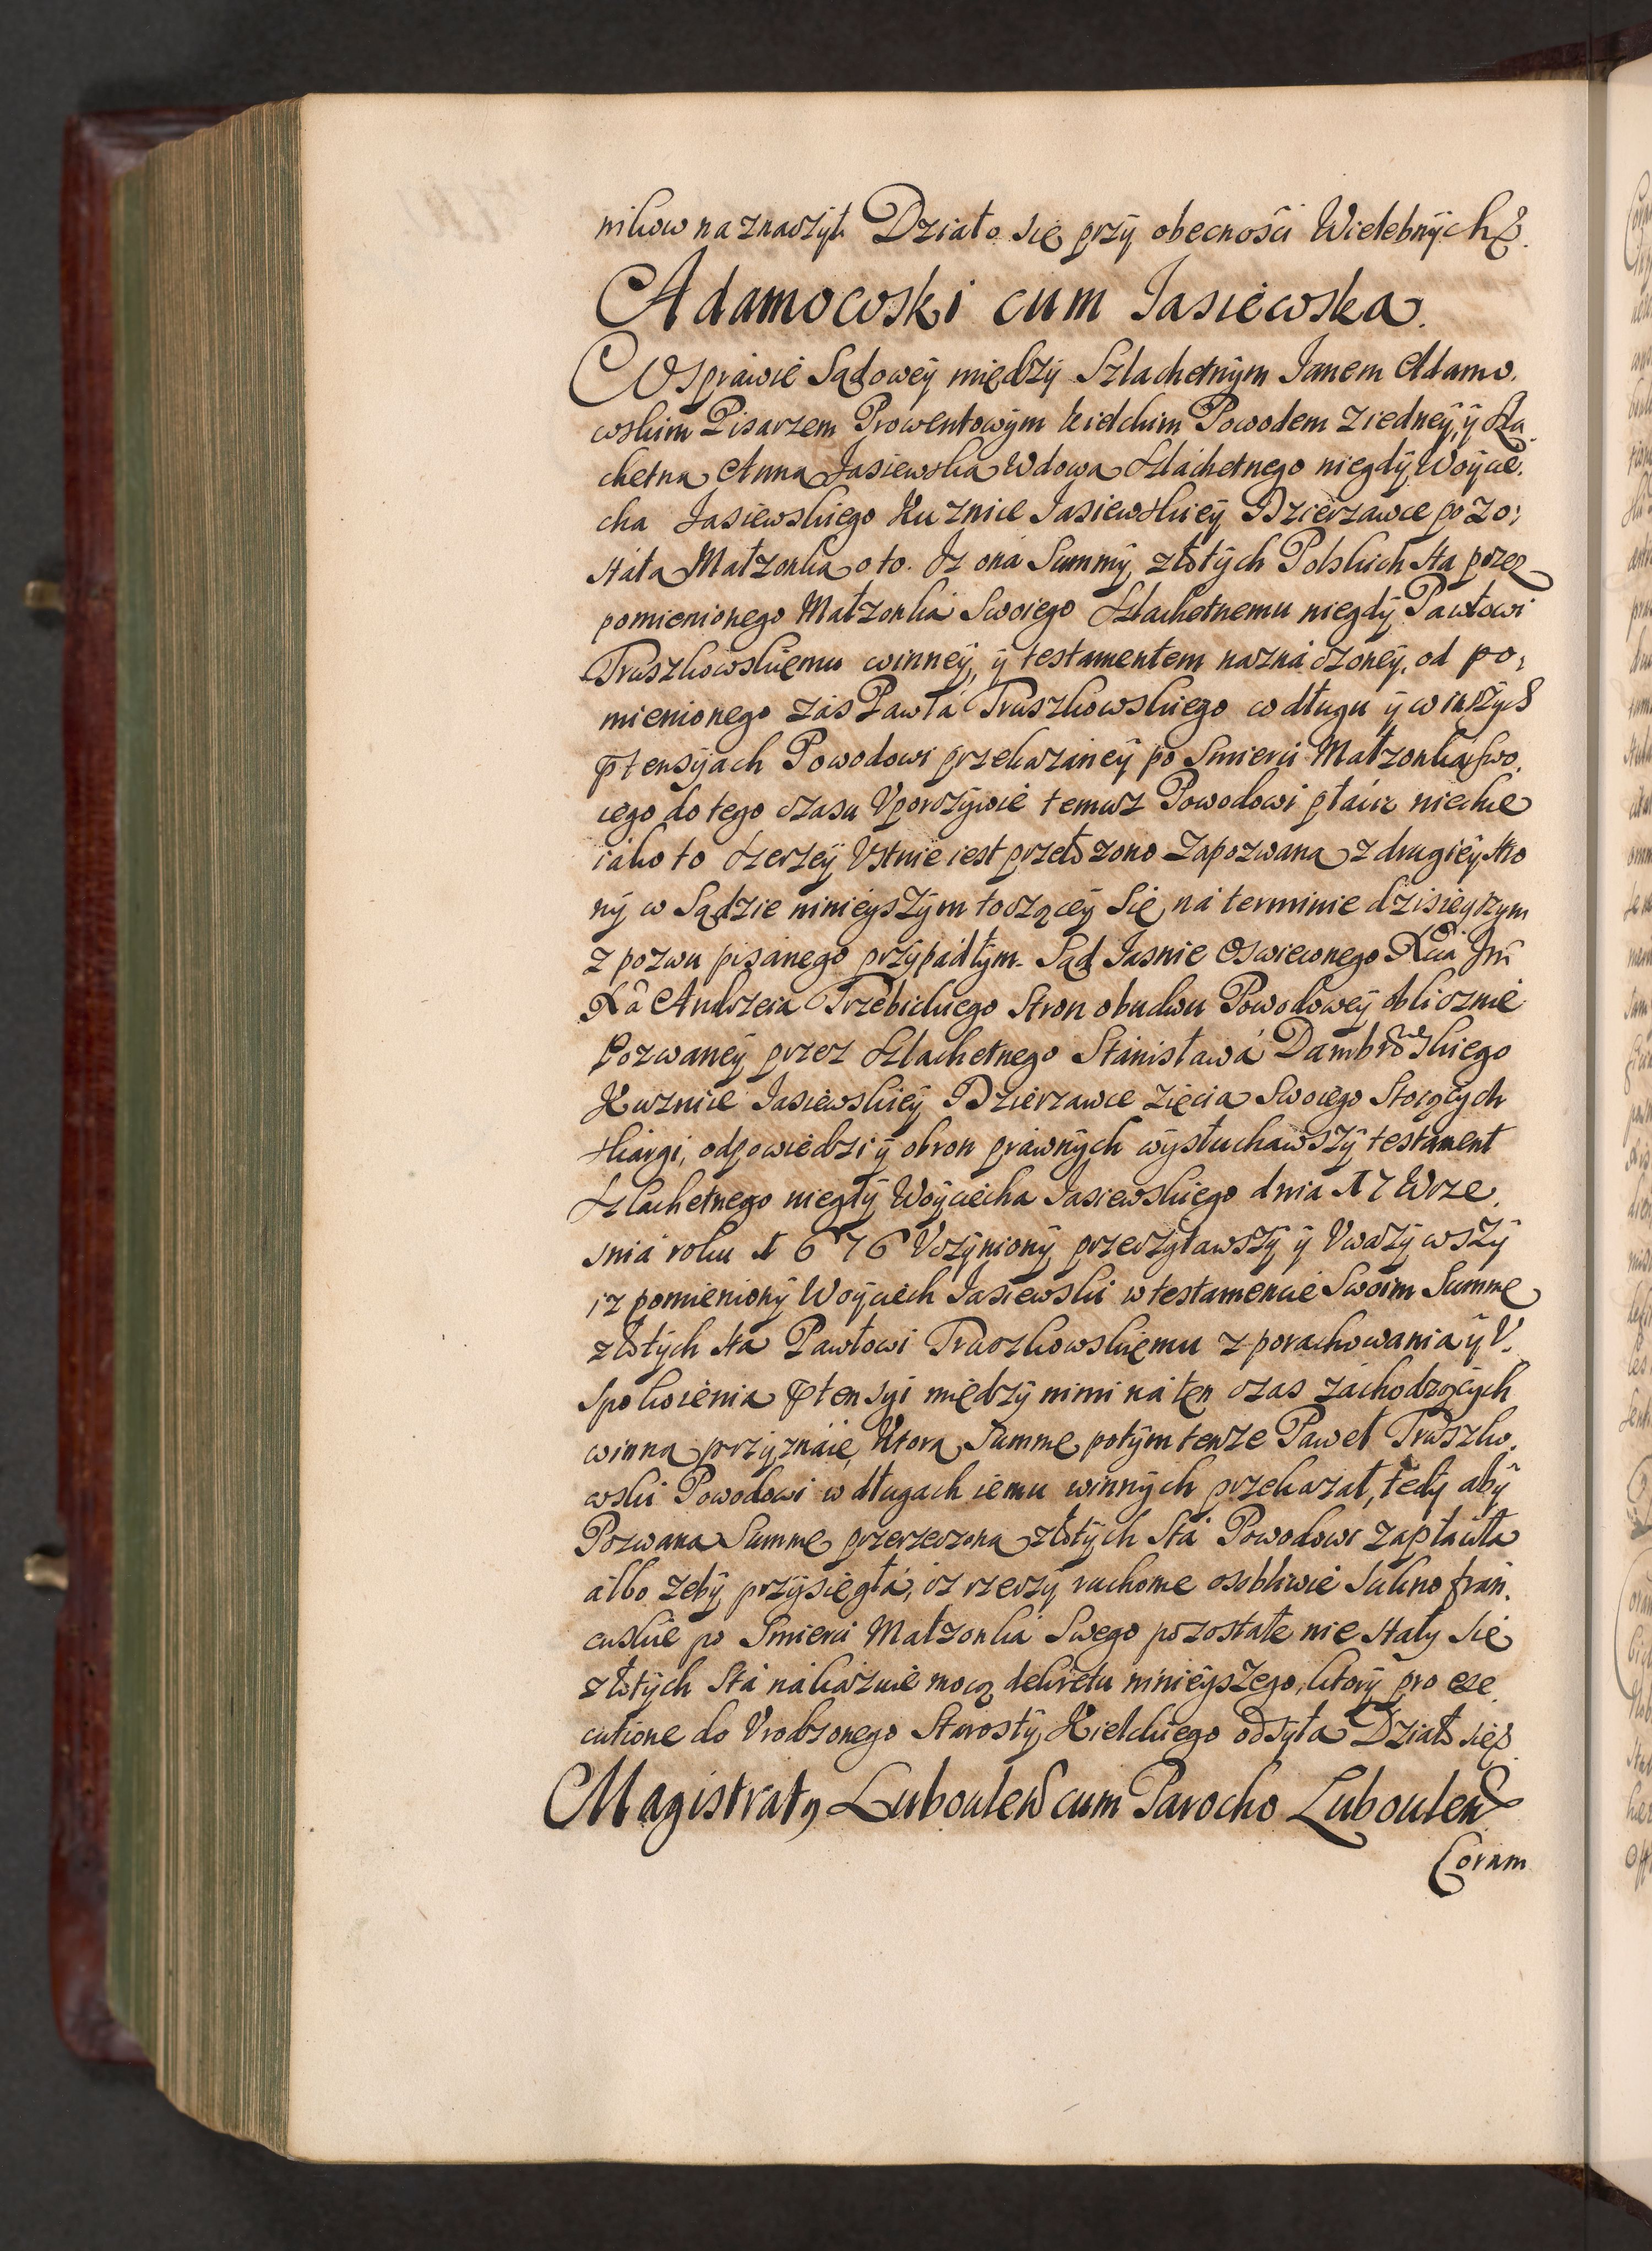 nikow naznaczył. Działo się przÿ obecności Wielebnÿch &.
Adamowski cum Jasiewska.
W Spráwie Sądoweÿ międzÿ Szlachetnÿm Janem Adamo.
wskim Pisarzem Prowentowÿm kielckim Powodem z iedneÿ, ÿ Szla.
chetna Anna Jasiewska Wdowa Szlachetnego niegdÿ Woÿcie.
cha Jasiewskiego Kuznice Jasiewskieÿ Dzierzawce pozo:
stáła Małzonka o to. Iz oná Summÿ złotÿch Polskich sta przez
pomienionego Małzonká Swoiego Szlachetnemu niegdÿ Pawłowi
Truszkowskiemu winneÿ, ÿ testamentem náznáczoneÿ, od po:
mienionego zás Páwłá Truszkowskiego w długu ÿ w inszÿch
ptensÿách Powodowi przekazáneÿ po Smierci Małzonka swo.
iego do tego czasu Vporczÿwie temusz Powodowi płácic niechce
iáko to szerzeÿ Vstnie iest przełozono Zapozwana z drugieÿ stro
nÿ w Sądzie ninieÿszÿm toczącey Się ná terminie dzisieÿszÿm
z pozwu pisánego przÿpádłÿm. Sąd Jasnie Oswieconego Xcia Jm
Xa Andrzeia Trzebickiego Stron obudwu Powodoweÿ obliczniė
Pozwaneÿ przez Szlachetnego Stanisławá Dambrowskiego
Kuznice Jasiewskieÿ Dzierzawce zięcia Swoiego Stoiących
skárgi, odpowiedzi ÿ obron práwnÿch wÿsłuchawszÿ testament
Szlachetnego niegdÿ Woÿciecha Jasiewskiego dnia 17 Wrze.
sniá roku 1676 Vczÿnionÿ przeczÿtawszÿ ÿ Vwazÿwszÿ
iz pomienionÿ Woÿciech Jasiewski w testamencie Swoim Summe
złotÿch sta Pawłowi Truszkowskiemu z porachowania ÿ V.
spokoienia ptensyi międzÿ nimi ná ten czas záchodzącÿch
winna przÿznáie, Ktora Summe potÿm tenze Paweł Truszko.
wski Powodowi w długach iemu winnÿch przekazał, tedÿ abÿ
Pozwana Summe przerzeczona złotÿch Stá Powodowi zápłáciła
álbo zebÿ przÿsięgłá, iz rzeczÿ ruchome osobliwie Sukno frán.
cuskie po Smierci Małzonká Swego pozostałe nie Stałÿ Się
złotÿch Stá nákazuie mocą dekretu ninieÿszego, ktorÿ pro exe.
cutione do Vrodzonego Starostÿ Kielckiego odsÿła Działo się &.
Magistratq Luboulen cum Parocho Luboulen
Coram